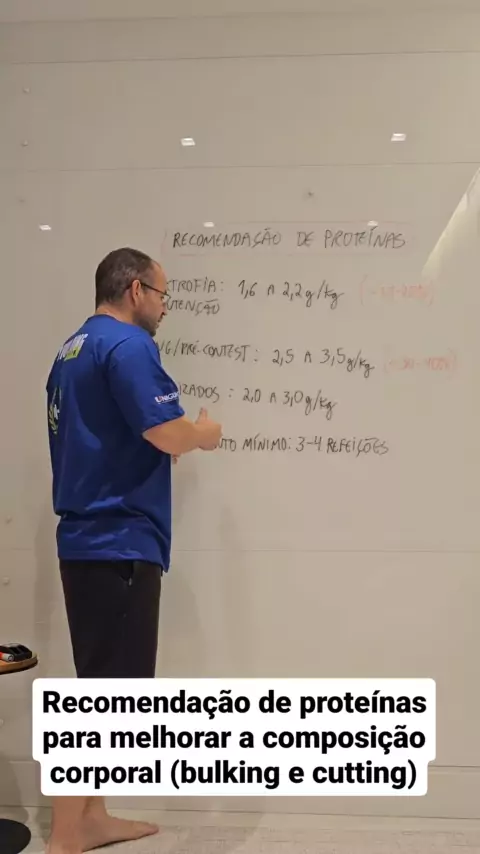 RECOMENDAÇÃO DE PROTEÍNAS
TROFIA: 1,6 A 2,2g/kg
UTENÇÃO
NG/PRÉ-CONTEST: 2,5 A 3,5g/kg
IZADOS: 2,0 A 3,0g/kg
NTO MÍNIMO: 3-4 REFEIÇÕES
Recomendação de proteínas
para melhorar a composição
corporal (bulking e cutting)